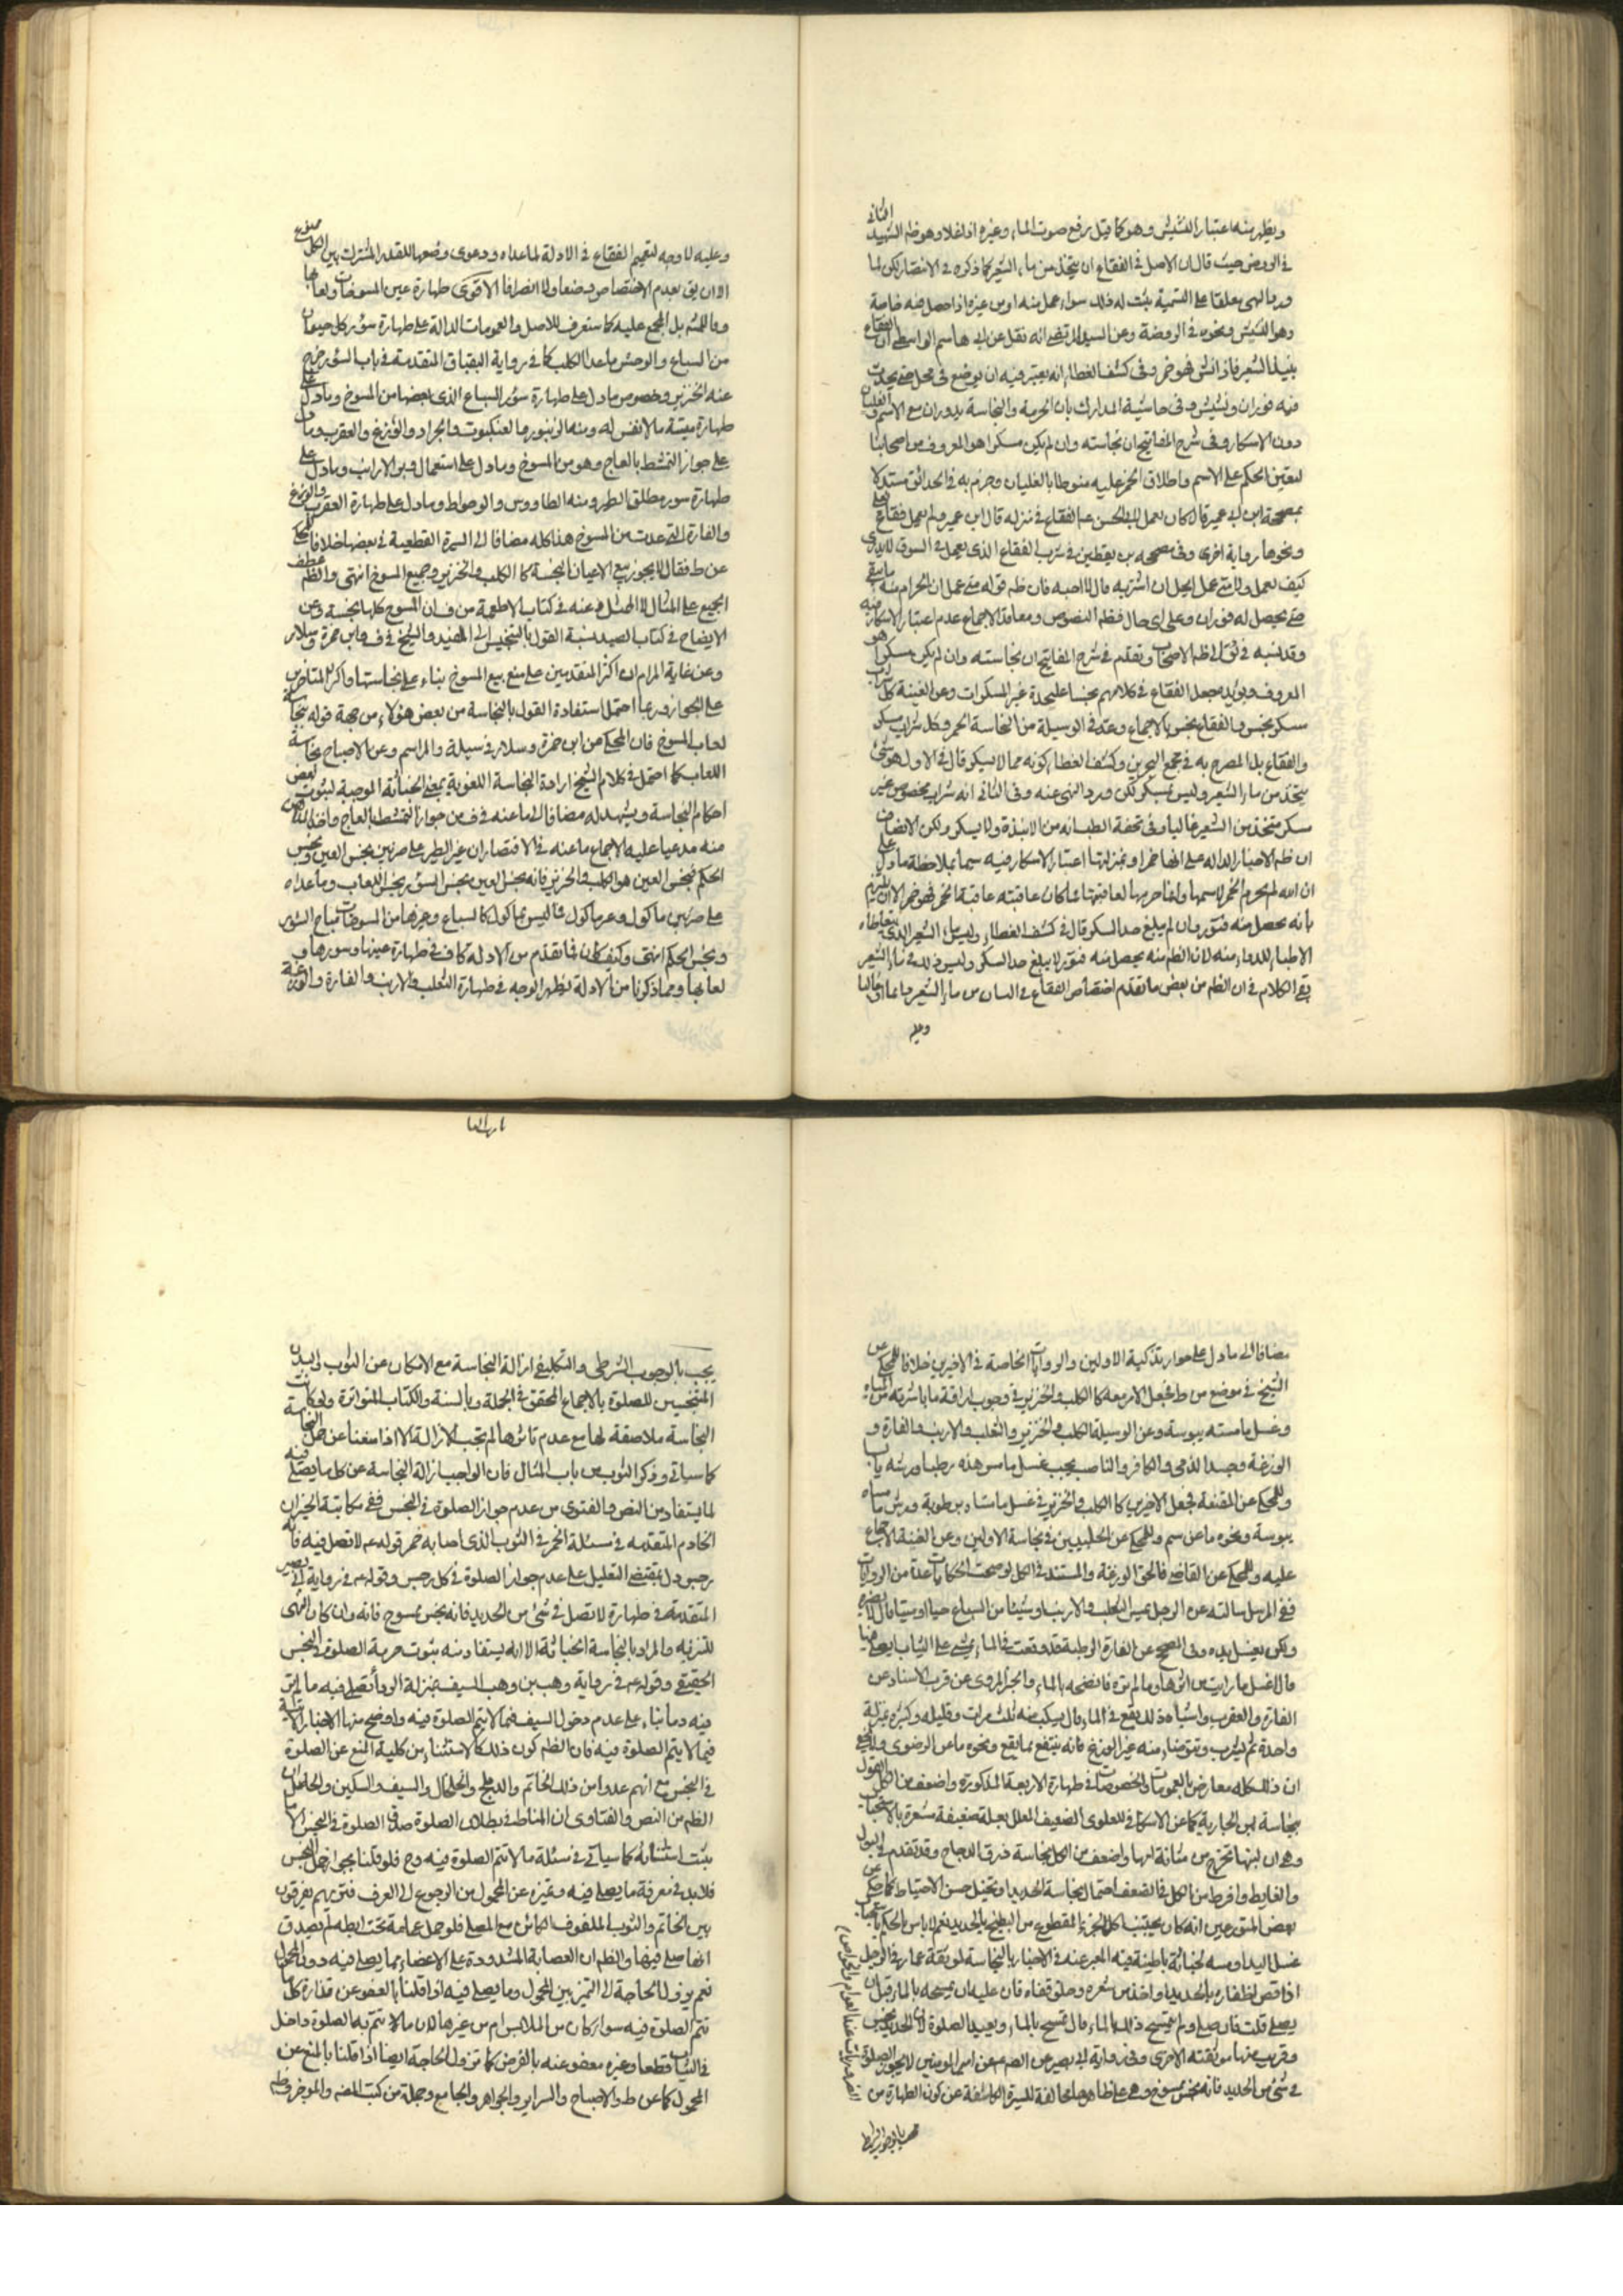 ويظهر منه اعتبار النشيش وهو كما قيل رفع صوت الماء وغيره اذا غلا وهو ظم الشهيد الثانى
في الروض حيث قال ان الاصل في الفقاع ان يتخذ من ماء الشعير كما ذكره في الانتصار لكن لما
ورد النهى معلقا على التسمية ثبت له ذلك سواء عمل منه او من غيره اذا حصل فيه خاصة
وهو النشيش ونحوه في الروضة وعن السيد المرتضى انه نقل عن ابى هاشم الواسطى ان الفقاع
نبيذ الشعير فاذا نش فهو خمر وفى كشف الغطاء انه يعتبر فيه ان يوضع في محل حتى يحدث
فيه فوران ونشيش وفى حاشية المدارك بان الحرمة والنجاسة يدوران مع الاسم والغليان
دون الاسكار وفى شرح المفاتيح ان نجاسته وان لم يكن مسكرا هو المعروف من اصحابنا
لتعين الحكم على الاسم واطلاق الخمر عليه منوطا بالغليان وجزم به في الحدائق مستدلا
بصحيحة ابن ابى عمير قال كان يعمل لابى الحسن ع الفقاع في منزله قال ابن عمير ولم يعمل فقاع يغلى
ونحوها رواية اخرى وفى صحيحه بن يقطين في شرب الفقاع الذى يعمل في السوق لا يدرى
كيف يعمل ولا متى عمل ايحل ان اشربه قال لا احبه فان ظم قوله متى عمل ان الحرام منه ما بقى
حتى يحصل له فوران وعلى اى حال فظم النصوص ومعاقد الاجماع عدم اعتبار الاسكار فيه
وقد نسبه في الى ظم الاصحاب وتقدم في شرح المفاتيح ان نجاسته وان لم يكن مسكرا هو
المعروف ويؤيده جعل الفقاع في كلامهم نجسا عليحدة غير المسكرات وعن الغنية كل شراب
مسكر نجس والفقاع نجس بالاجماع وعد في الوسيلة من النجاسة الخمر وكل شراب مسكر
والفقاع بل المصرح به في مجمع البحرين وكشف الغطاء كونه مما لا يسكر قال في الاول هو شئ
يتخذ من ماء الشعير وليس بمسكر لكن ورد النهى عنه وفى الثانى انه شراب مخصوص غير
مسكر متخذ من الشعير غالبا وفى تحفة الطب انه من الانبذة ولا يسكر ولكن الانصاف
ان ظم الاخبار الدالة على انها خمر او بمنزلتها اعتبار الاسكار فيه سيما بملاحظة ما دل على
ان الله لم يحرم الخمر لاسمها وانما حرمها لعاقبتها فما كان عاقبته عاقبة الخمر فهو خمر الا ان يلتزم
بانه يحصل منه فتور وان لم يبلغ حد السكر قال في كشف الغطاء وليس ماء الشعير الذى يتعاطاه
الاطباء للدواء منه لان الظم منه يحصل منه فتور لا يبلغ حد السكر وليس ذلك في ماء الشعير
بقى الكلام في ان الظم من بعض ما تقدم اختصاص الفقاع في اللسان من ماء الشعير دائما او غالبا
وعليه
وعليه لا وجه لتعميم الفقاع في الادلة لما عداه ودعوى وضعها للقدر المشترك بين الكل ممنوع
الا ان يق بعدم الاختصاص وضعا ولا انصرافا الاقوى طهارة عين المسوخات ولعابها
وفاقا للمشهور بل المجمع عليه كما ستعرف للاصل والعمومات الدالة على طهارة سؤر كل حيوان
من السباع والوحش ما عدا الكلب كما في رواية البقباق المتقدمة في باب السؤر خرج
عنه الخنزير وخصوص ما دل على طهارة سؤر السباع الذى بعضها من المسوخ وما دل على
طهارة ميتة ما لا نفس له ومنه الزنبور والعنكبوت والجراد والوزغ والعقرب وما دل
على جواز التمشط بالعاج وهو من المسوخ وما دل على استعمال وبر الارانب وما دل على
طهارة سور مطلق الطير ومنه الطاووس والوطواط وما دل على طهارة العقرب والوزغ
والفارة التى عدت من المسوخ هذا كله مضافا الى السيرة القطعية في بعضها خلافا للمحكى
عن ط فقال لا يجوز بيع الاعيان النجسة كالكلب والخنزير وجميع المسوخ انتهى والظم عطف
الجميع على المثال لا الممثل وعنه في كتاب الاطعمة من ف ان المسوخ كلها نجسة وعن
الايضاح في كتاب الصيد نسبة القول بالتنجيس الى المفيد والشيخ في ف وابن حمزة وسلار
وعن غاية المرام ان اكثر المتقدمين على منع بيع المسوخ بناء على نجاستها واكثر المتاخرين
على الجواز وربما احتمل استفادة القول بالنجاسة من بعض هؤلاء من جهة قوله بنجاسة
لعاب المسوخ فان المحكى عن ابن حمزة وسلار في سيلة والمراسم وعن الاصباح نجاسة
اللعاب كما احتمل في كلام الشيخ ارادة النجاسة اللغوية بمعنى الخباثة الموجبة لثبوت بعض
احكام النجاسة ويشهد له مضافا الى ما عنه في ف من جواز التمشط بالعاج
منه مدعيا عليه الاجماع ما عنه في الاقتصار ان غير الطير على ضربين نجس العين ونجس
الحكم فنجس العين هو الكلب والخنزير فانه نجس العين نجس السؤر نجس اللعاب وما عداه
على ضربين ماكول وغير ماكول فما ليس بماكول كالسباع وغيرها من المسوخات مباح السؤر
ونجس الحكم انتهى وكيف كان فما تقدم من الادلة كاف في طهارة عينها وسورها و
لعابها ومما ذكرنا من الادلة يظهر الوجه في طهارة الثعلب والارنب والفارة والوزغة
مضافا الى ما دل على جواز تذكية الاولين والروايات الخاصة في الاخيرين خلافا للمحكى عن
الشيخ في موضع من ط فجعل الاربعة كالكلب والخنزير في وجوب اراقة ما باشرته من المياه
وغسل ما مسته بيبوسة وعن الوسيلة الكلب والخنزير والثعلب والارنب والفارة و
الوزغة وجسد الذمى والكافر والناصب يجب غسل ما مس هذه رطبا ورشه يابسا
وللمحكى عن المقنعة فجعل الاخيرين كالكلب والخنزير في غسل ما مساه برطوبة ورش ما مساه
بيبوسة ونحوه ما عن سم وللمحكى عن الحلبيين في نجاسة الاولين وعن الغنية الاجماع
عليه وللمحكى عن القاضى فالحق الوزغة والمستند في الكل لو صحت الحكايات عدة من الروايات
ففى المرسل سالته عن الرجل يمس الثعلب والارنب او شيئا من السباع حيا او ميتا قال لا يضره
ولكن يغسل يده وفى الصحيح عن الفارة الرطبة قد وقعت في الماء تمشى على الثياب ايصلى فيها
قال اغسل ما رايت من اثرها وما لم تره فانضحه بالماء والخبر المروى عن قرب الاسناد عن
الفارة والعقرب واشباه ذلك يقع في الماء قال يسكب منه ثلث مرات وقليله وكثيره بمنزلة
واحدة ثم يشرب ويتوضا منه غير الوزغ فانه لا ينتفع بما يقع ونحوه ما عن الرضوى
ان ذلك كله معارض بالعمومات والخصوصات في طهارة الاربعة المذكورة واضعف من الكل القول
بنجاسة لبن الجارية كما عن الاسكافى للعلوى الضعيف المعلل بعلة ضعيفة مشعرة بالاستحباب
وهى ان لبنها يخرج من مثانة امها واضعف من الكل نجاسة ذرق الدجاج وقد تقدم في البول
والغايط وافرط من الكل في الضعف احتمال نجاسة الحديد او تخيل حسن الاحتياط كما حكى عن
بعض المتورعين انه كان يجتنب اكل الخبز المقطوع من البطيخ بالحديد نعم لا باس بالحكم باستحباب
غسل اليد او مسه لخباثة باطنية فيه المعبر عنه في الاخبار بالنجاسة لموثقة عمار في الرجل
اذا قص اظفاره بالحديد او اخذ من شعره وحلق قفاه فان عليه ان يمسحه بالماء قبل ان
يصلى قلت فان صلى ولم يمسح ذلك بالماء قال يمسح بالماء ويعيد الصلوة لان الحديد نجس
وقريب منها موثقته الاخرى وفى رواية ابى بصير عن الصم عن امير المومنين لا يجوز الصلوة
في شئ من الحديد فانه نجس ممسوخ وهى على ظاهرها مخالفة للسيرة الكاشفة عن كون الطهارة من
الضروريات عند العوام والخواص
يجب بالوجوب الشرطى
يجب بالوجوب الشرطى والتكليفى ازالة النجاسة مع الامكان عن الثوب والبدن
المتنجسين للصلوة بالاجماع المحقق في الجملة وبالسنة والكتاب المتواترة ولو كانت
النجاسة ملاصقة لها مع عدم تاثرها لم تجب الازالة الا اذا منعنا عن حمل النجاسة
كما سياتى وذكر الثوب من باب المثال فان الواجب ازالة النجاسة عن كل ما يصلى فيه
لما يستفاد من النص والفتوى من عدم جواز الصلوة في النجس ففى مكاتبة الخيران
الخادم المتقدمة في مسئلة الخمر في الثوب الذى اصابه خمر قوله ع لا تصل فيه فانه
رجس دل بمقتضى التعليل على عدم جواز الصلوة في كل رجس وقوله ع في رواية ابى بصير
المتقدمة في طهارة لا تصل في شئ من الحديد فانه نجس ممسوخ فانه وان كان النهى
للتنزيه والمراد بالنجاسة الخباثة الا انه يستفاد منه ثبوت حرمة الصلوة في النجس
الحقيقى وقوله ع في رواية وهب بن وهب السيف بمنزلة الرداء تصلى فيه ما لم تر
فيه دما بناء على عدم دخول السيف فيما لا يتم الصلوة فيه واوضح منها الاخبار الاتية
فيما لا يتم الصلوة فيه فان الظم كون ذلك كالاستثناء من كلية المنع عن الصلوة
في النجس مع انهم عدوا من ذلك الخاتم والدملج والخلخال والسيف والسكين والحاصل ان
الظم من النص والفتاوى ان المناط في بطلان الصلوة صدق الصلوة في النجس الا ما
يثبت استثنائه كما سياتى في مسئلة ما لا تتم الصلوة فيه وح فلو قلنا بجواز حمل النجس
فلا بد في معرفة ما يصلى فيه وتميزه عن المحمول من الرجوع الى العرف فتريهم يفرقون
بين الخاتم والثوب الملفوف الكائن مع المصلى فلو حمل عمامة تحت ابطه لم يصدق
انه صلى فيها والظم ان العصابة المشدودة على الاعضاء مما يصلى فيه دون المحمول
نعم يرفع الحاجة الى التميز بين المحمول وما يصلى فيه اذا قلنا بالعفو عن قذارة كل ما لا
تتم الصلوة فيه سواء كان من الملابس ام من غيرها لان ما لا تتم به الصلوة داخل
في الثياب قطعا وغيره معفو عنه بالفرض كما تزول الحاجة ايضا اذا قلنا بالمنع عن
المحمول كما عن ط والاصباح والسرائر والجواهر والجامع وجملة من كتب الفضه والموجز وظم